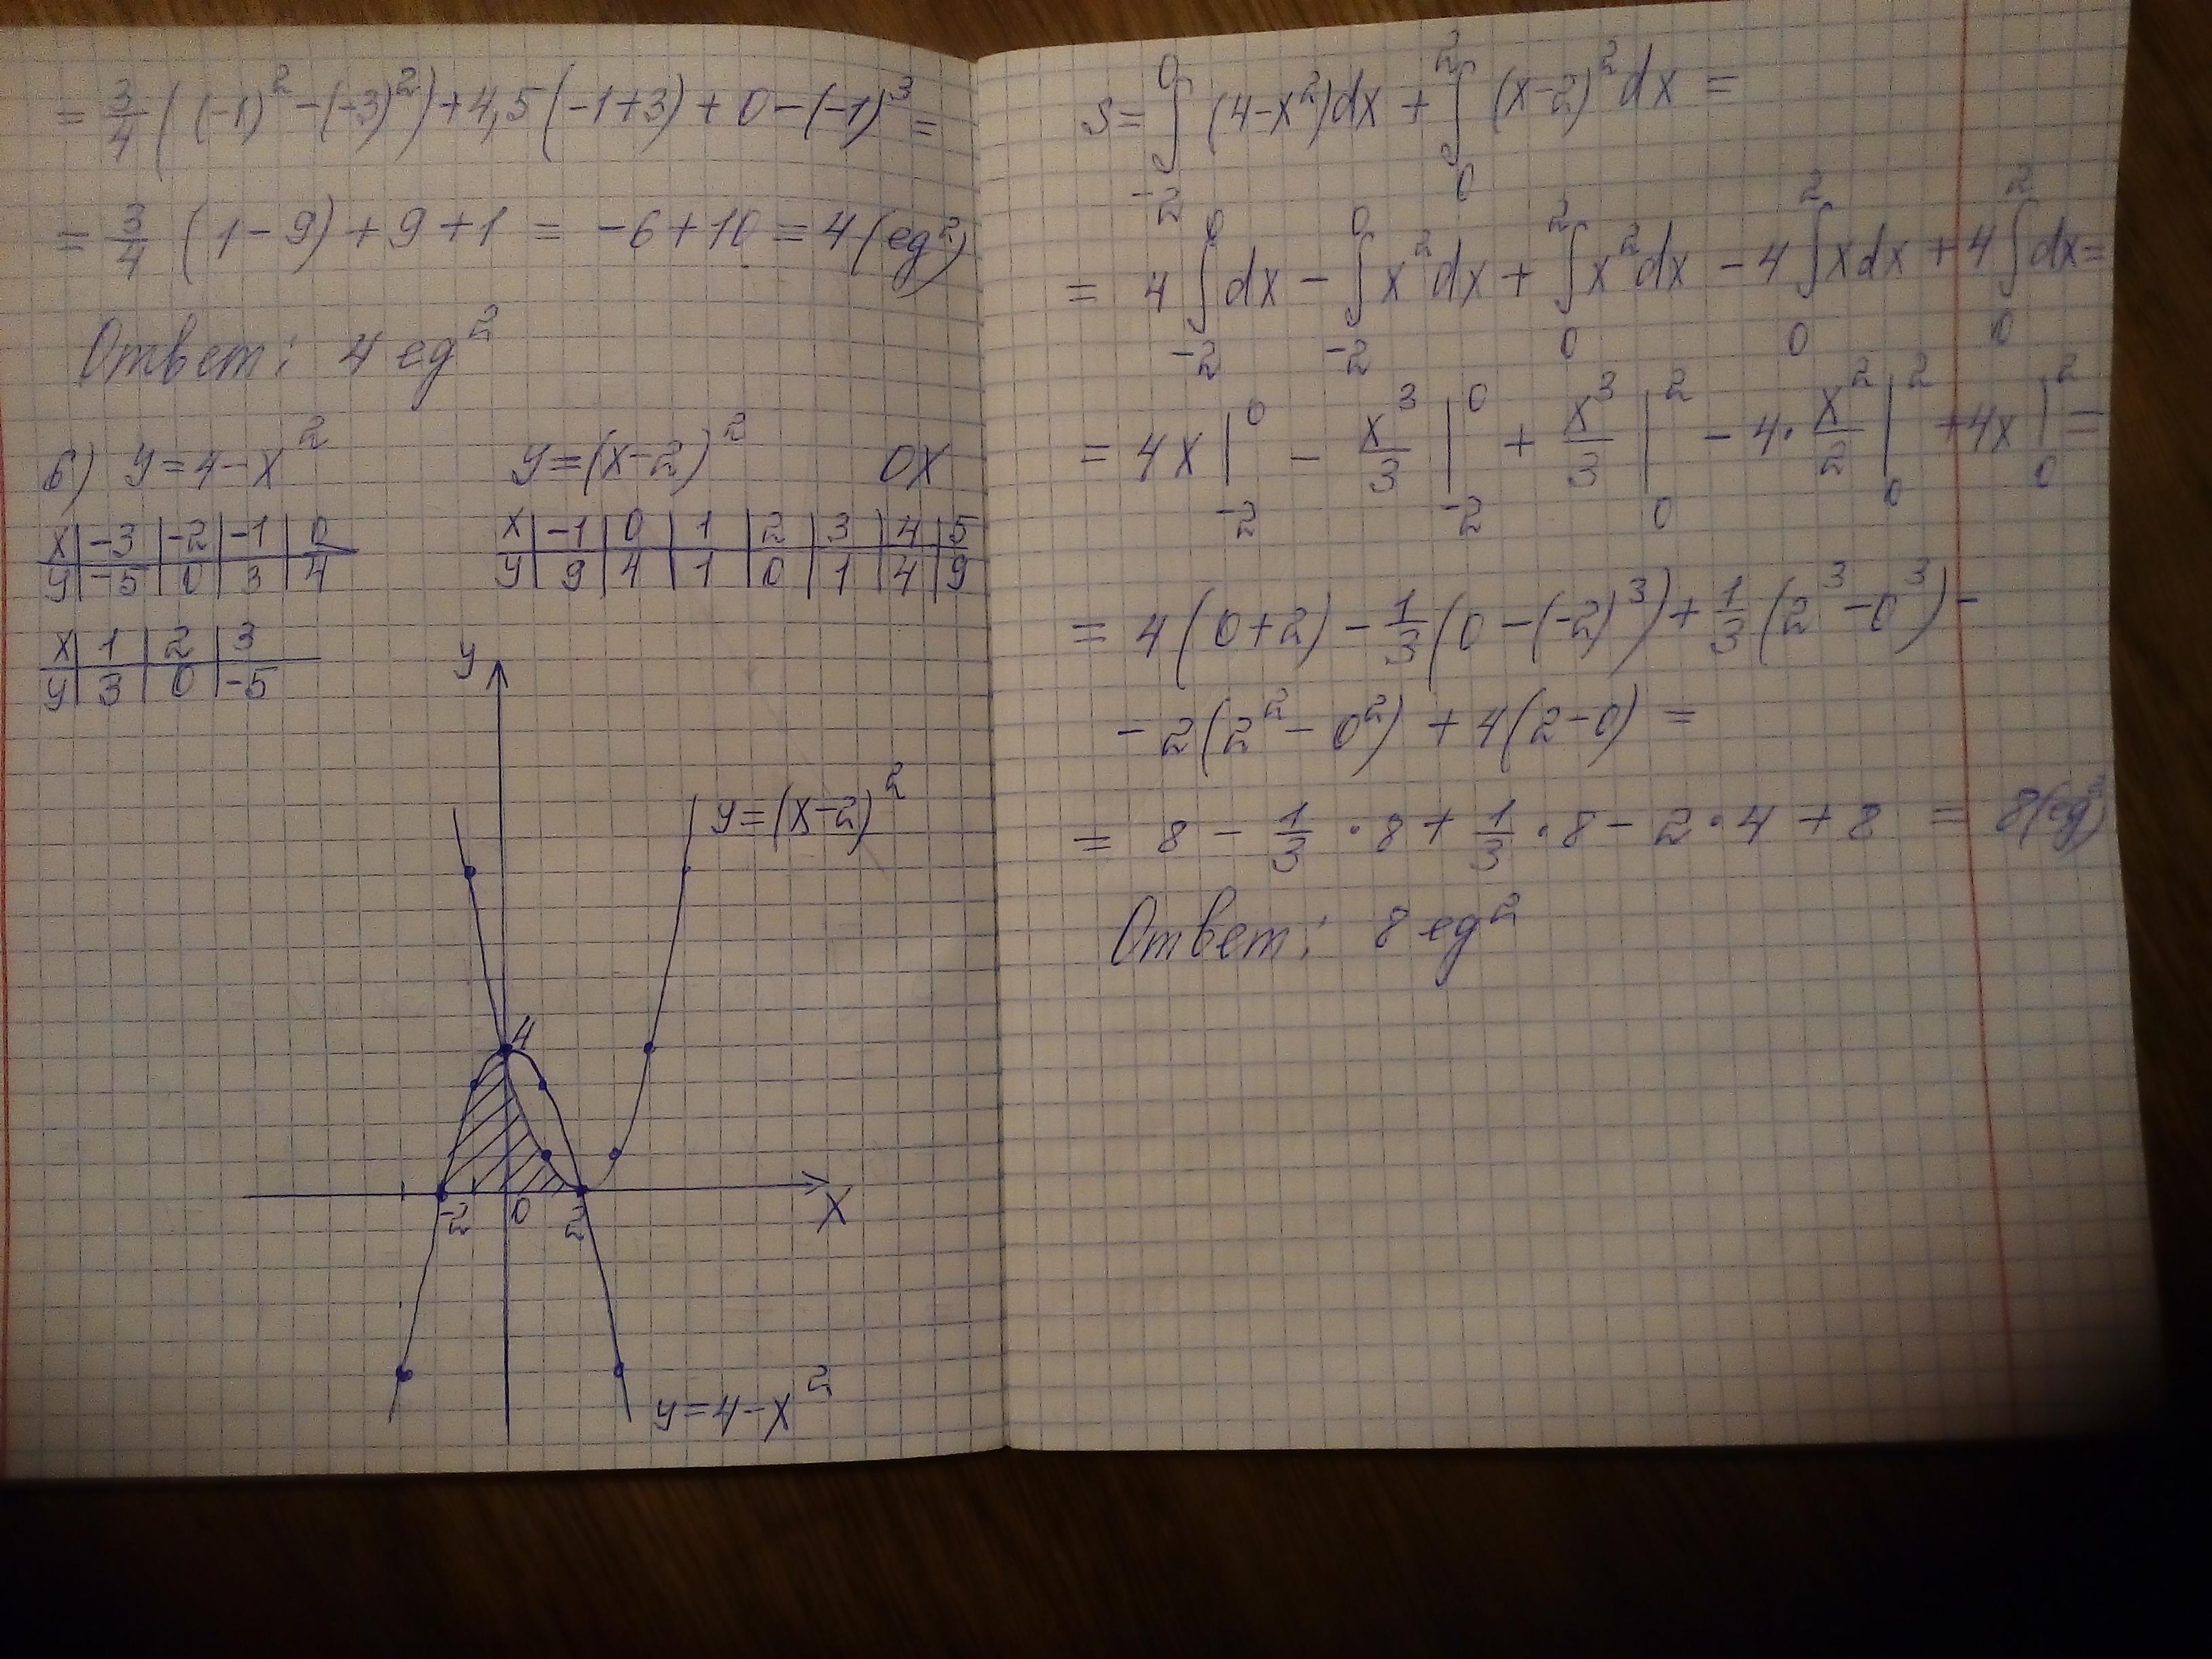 = 3/4 ((-1)² - (-3)²) + 4,5(-1+3) + 0 - (-1)³ =
= 3/4 (1 - 9) + 9 + 1 = -6 + 10 = 4 (ед²)
Ответ: 4 ед²
б) y = 4 - x²   y = (x-2)²   OX
x | -3 | -2 | -1 | 0
y | -5 | 0 | 3 | 4
x | -1 | 0 | 1 | 2 | 3 | 4 | 5
y | 9 | 4 | 1 | 0 | 1 | 4 | 9
x | 1 | 2 | 3
y | 3 | 0 | -5
y
y = (x-2)²
4
-2 0 2
x
y = 4 - x²
S = ∫₋₂⁰ (4-x²)dx + ∫₀² (x-2)² dx =
= 4 ∫₋₂⁰ dx - ∫₋₂⁰ x² dx + ∫₀² x² dx - 4 ∫₀² x dx + 4 ∫₀² dx =
= 4x |₋₂⁰ - x³/3 |₋₂⁰ + x³/3 |₀² - 4 · x²/2 |₀² + 4x |₀² =
= 4(0+2) - 1/3 (0 - (-2)³) + 1/3 (2³ - 0³) -
- 2(2² - 0²) + 4(2-0) =
= 8 - 1/3 · 8 + 1/3 · 8 - 2 · 4 + 8 = 8 (ед²)
Ответ: 8 ед²